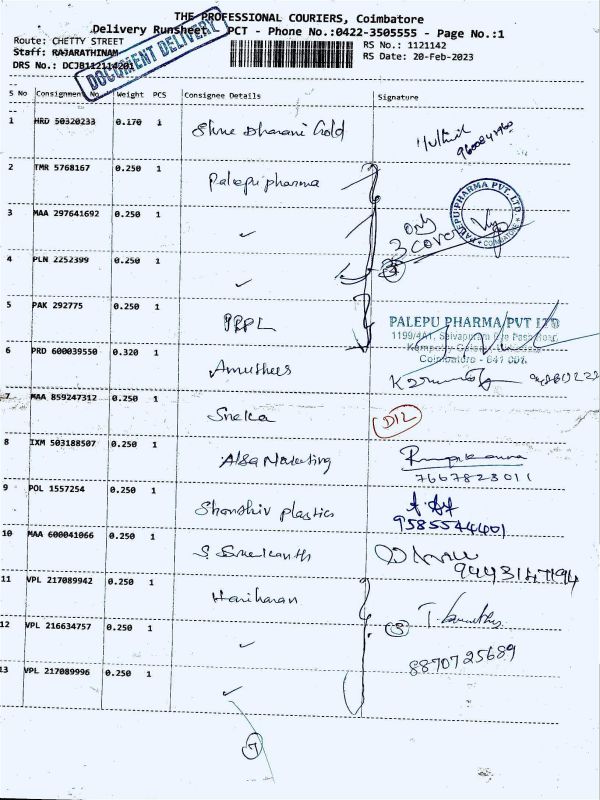 THE PROFESSIONAL COURIERS, Coimbatore
Delivery Runsheet PCT - Phone No.:0422-3505555 - Page No.:1
Route: CHETTY STREET
RS No.: 1121142
Staff: RAJARATHINAM
RS Date: 20-Feb-2023
DRS No.: DCJB112114201
DOCUMENT DELIVERY
S No Consignment No. Weight PCS Consignee Details Signature
1 HRD 50320233 0.170 1 Shree Dharani Gold
2 TMR 5768167 0.250 1 Palepu pharma
3 MAA 297641692 0.250 1 ✓
only
3 cover
PALEPU PHARMA PVT. LTD.
COIMBATORE
4 PLN 2252399 0.250 1 ✓
5 PAK 292775 0.250 1 PPPL
PALEPU PHARMA PVT LTD
Coimbatore - 641 001.
6 PRD 600039550 0.320 1 Amuthees
7 MAA 859247312 0.250 1 Sneka D12
8 IXM 503188507 0.250 1 Alsa Marketing
7667823011
9 POL 1557254 0.250 1 Shanshiv plastics
9585544401
10 MAA 600041066 0.250 1 S. Sreekanth
9443147194
11 VPL 217089942 0.250 1 Hariharan
12 VPL 216634757 0.250 1 ✓ 3
8870725689
13 VPL 217089996 0.250 1 ✓
7